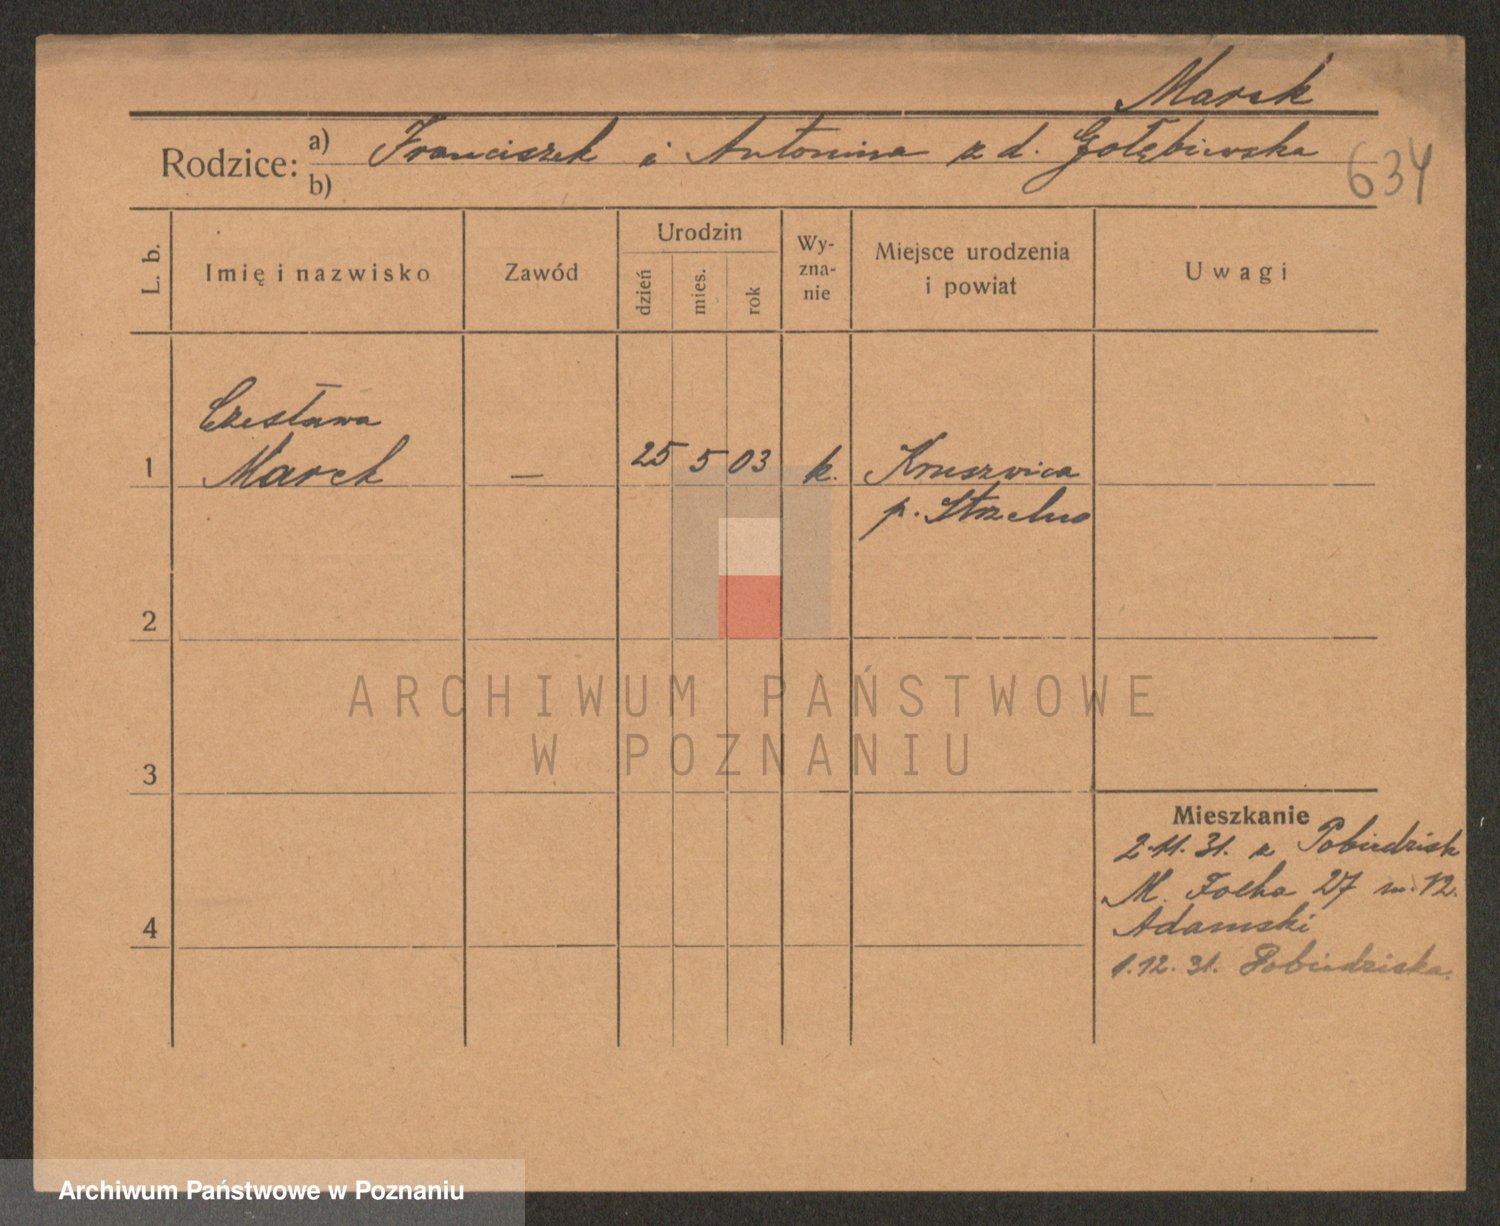 Marek
Rodzice: a) Franciszek i Antonina z d. Gołębiewska
b)
634
L. b.
Imię i nazwisko
Zawód
Urodzin
dzień
mies.
rok
Wy-
zna-
nie
Miejsce urodzenia
i powiat
Uwagi
Czesława
1 Marek — 25 5 03 k. Kruszwica
p. Strzelno
2
ARCHIWUM PAŃSTWOWE
W POZNANIU
3
Mieszkanie
2.11.31. z Pobiedzisk
M. Focha 27 m. 12.
Adamski
4
1.12.31. Pobiedziska.
Archiwum Państwowe w Poznaniu